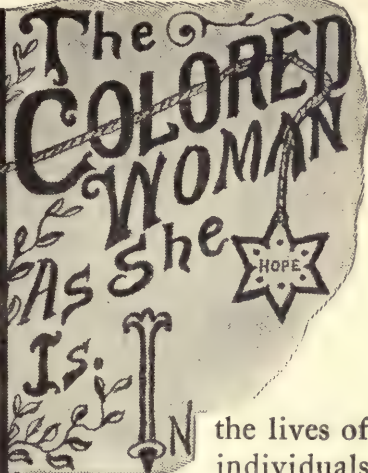 The
COLORED
WOMAN
As She
HOPE
Is.
IN the lives of
individuals